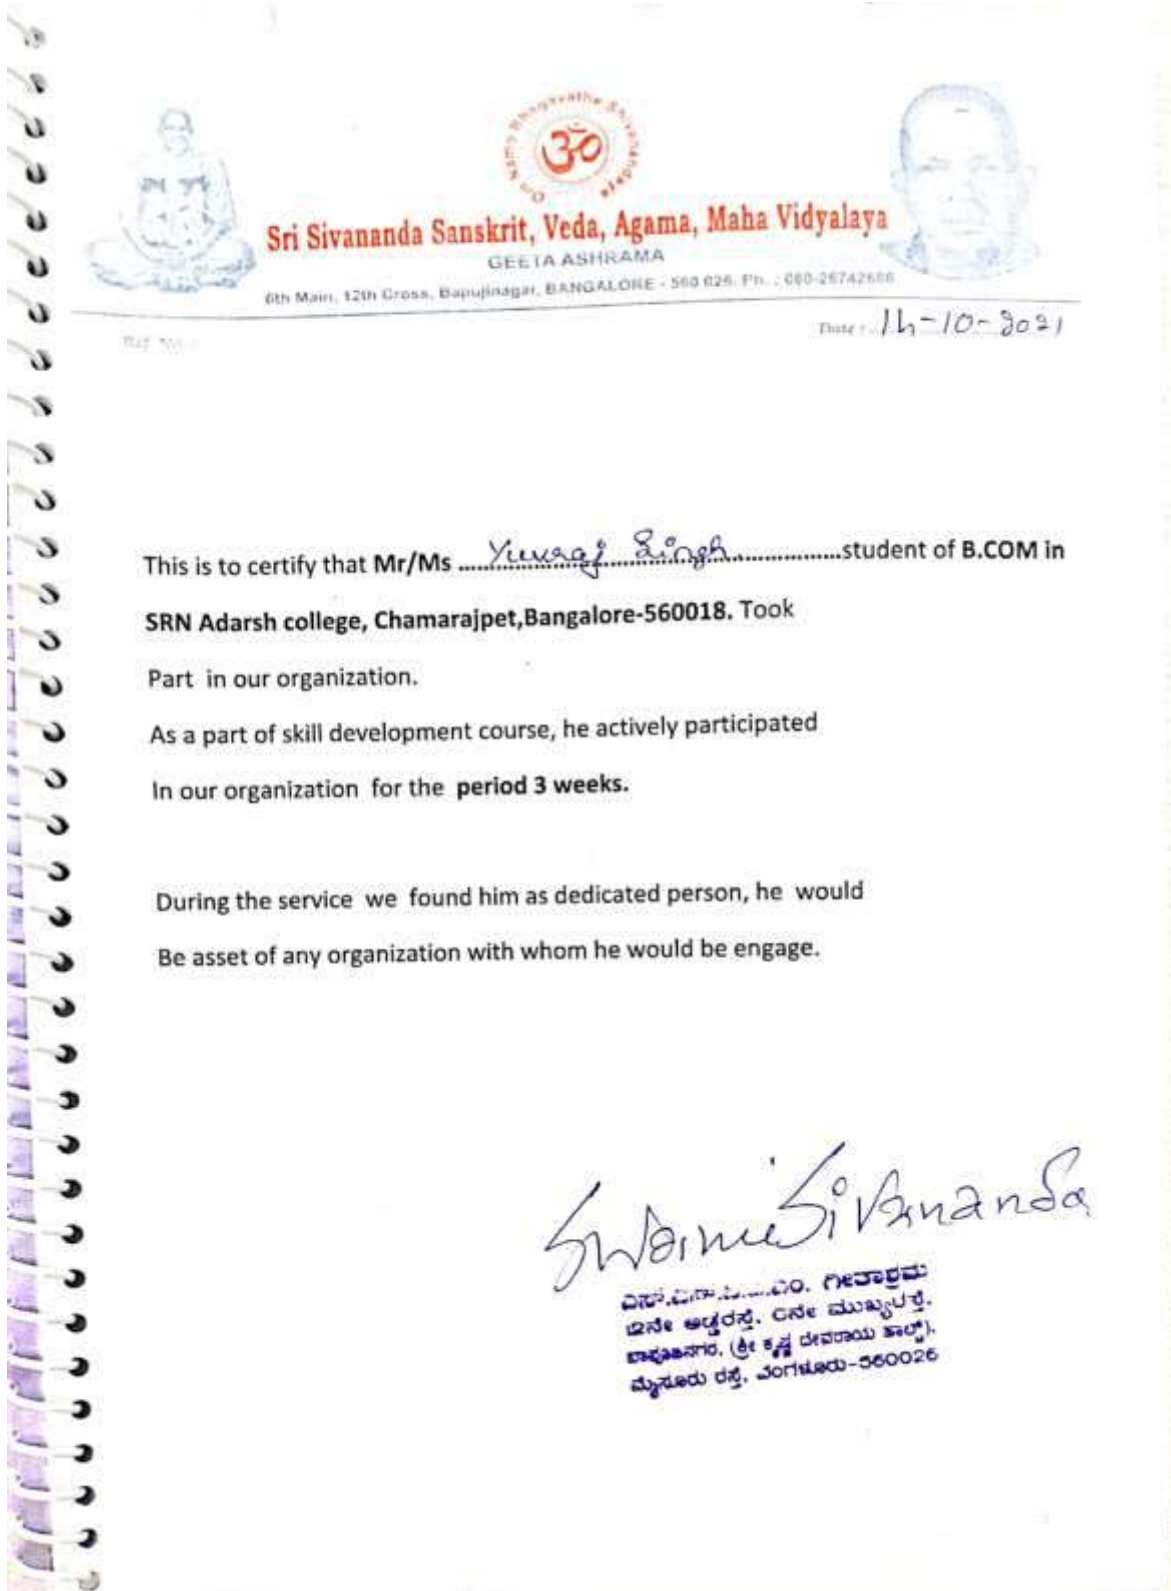 Om Namo Bhagavathe Shivanandaya
ॐ
Sri Sivananda Sanskrit, Veda, Agama, Maha Vidyalaya
GEETA ASHRAMA
6th Main, 12th Cross, Bapujinagar, BANGALORE - 560 026. Ph. : 080-26742686
Ref. No. :
Date : 14-10-2021
This is to certify that Mr/Ms ..... Yuvraj Singh .................student of B.COM in
SRN Adarsh college, Chamarajpet,Bangalore-560018. Took
Part in our organization.
As a part of skill development course, he actively participated
In our organization for the period 3 weeks.
During the service we found him as dedicated person, he would
Be asset of any organization with whom he would be engage.
Swami Sivananda
ಗೀತಾಶ್ರಮ
ಅಡ್ಡರಸ್ತೆ, ನೇ ಮುಖ್ಯರಸ್ತೆ,
(ಶ್ರೀ ಕೃಷ್ಣ ದೇವರಾಯ ಹಾಲ್),
ಮೈಸೂರು ರಸ್ತೆ, ಬೆಂಗಳೂರು-560026